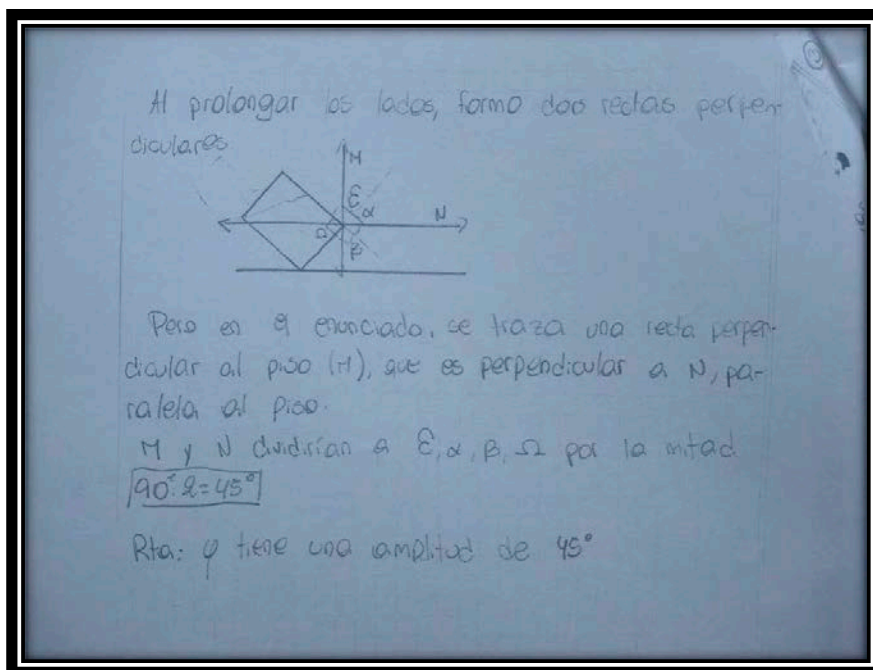 Al prolongar los lados, formo dos rectas perpen-
diculares
M
ε
α
N
Ω
β
Pero en el enunciado, se traza una recta perpen-
dicular al piso (M), que es perpendicular a N, pa-
ralela al piso.
M y N dividirían a ε, α, β, Ω por la mitad
90°:2=45°
Rta: φ tiene una amplitud de 45°